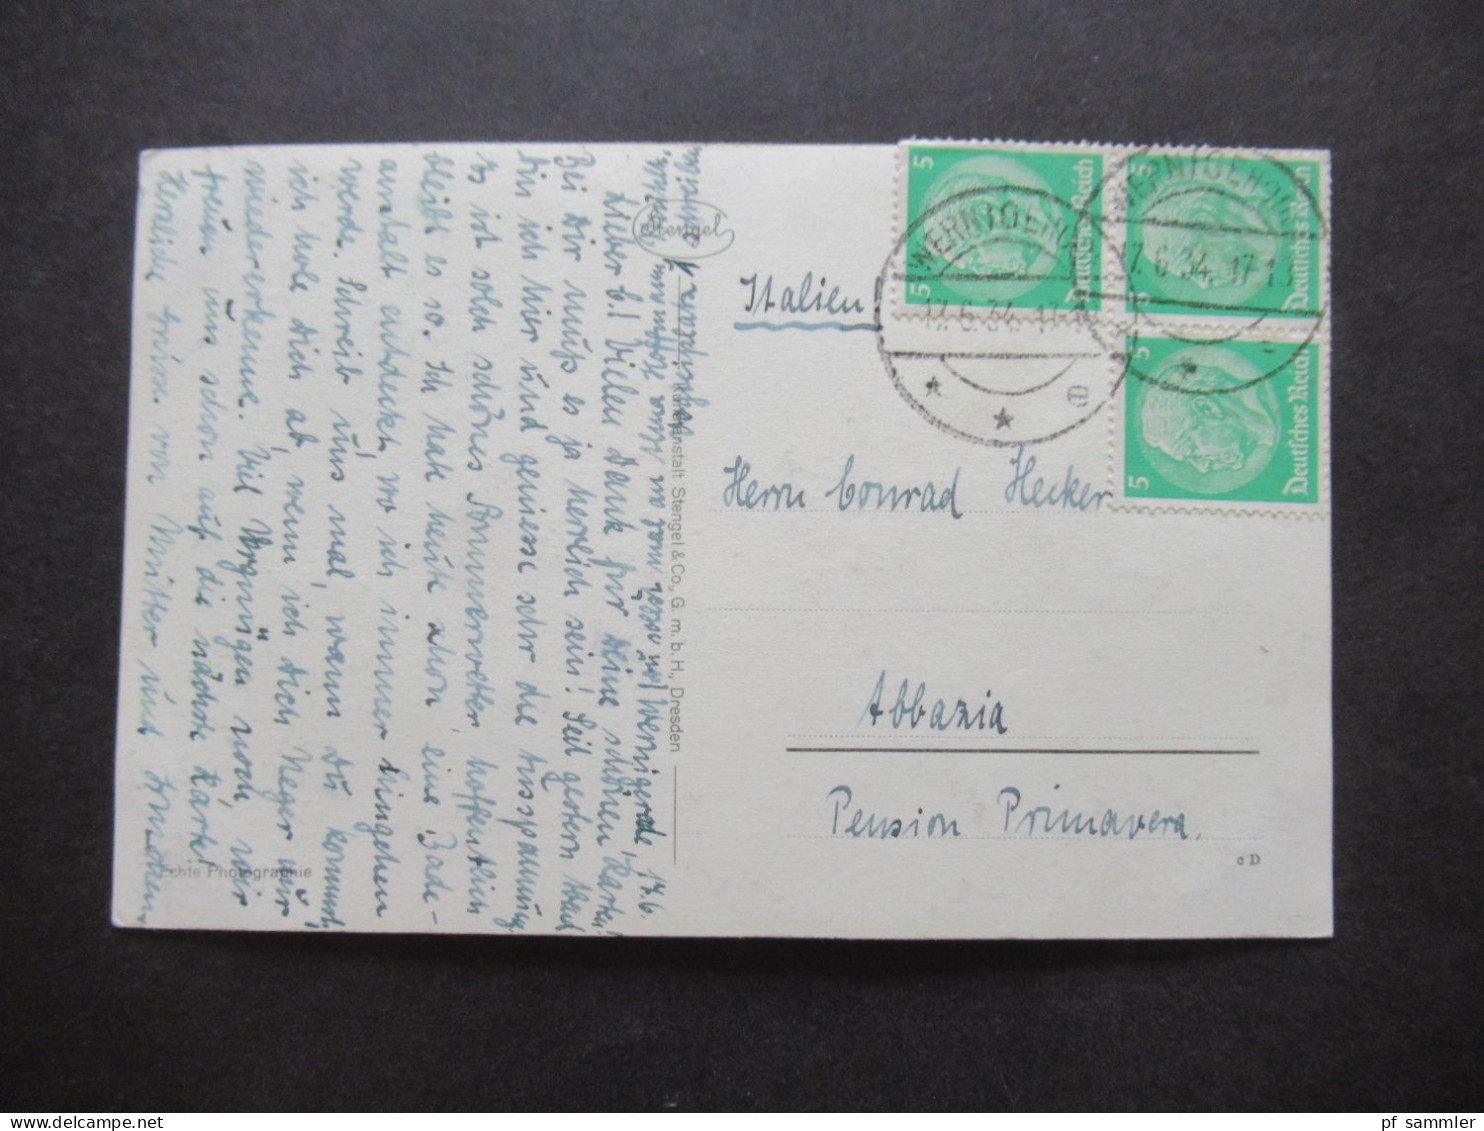 Wernigerode, 17.6.
Lieber C.! Vielen Dank für Deine schönen Karten.
Bei Dir muß es ja herrlich sein! Seit gestern Abend
bin ich hier und geniesse sehr die Ausspannung
Es ist solch schönes Sommerwetter, hoffentlich
bleibt es so. Ich habe heute schon eine Bade-
anstalt entdeckt, wo ich immer hingehen
werde. Schreib uns mal, wann Du kommst,
ich hole Dich ab, wenn ich Dich Neger nur
wiedererkenne. Viel Vergnügen noch, wir
freuen uns schon auf die nächste Karte!
Herzliche Grüsse von Mutter und
Stengel
Kunstanstalt Stengel & Co., G. m. b. H., Dresden
Echte Photographie
Italien
5 Deutsches Reich
5 Deutsches Reich
5 Deutsches Reich
WERNIGERODE
17.6.34. 17-18
WERNIGERODE
17.6.34. 17-18
Herrn Conrad Hecker
Abbazia
Pension Primavera.
c D
pf sammler